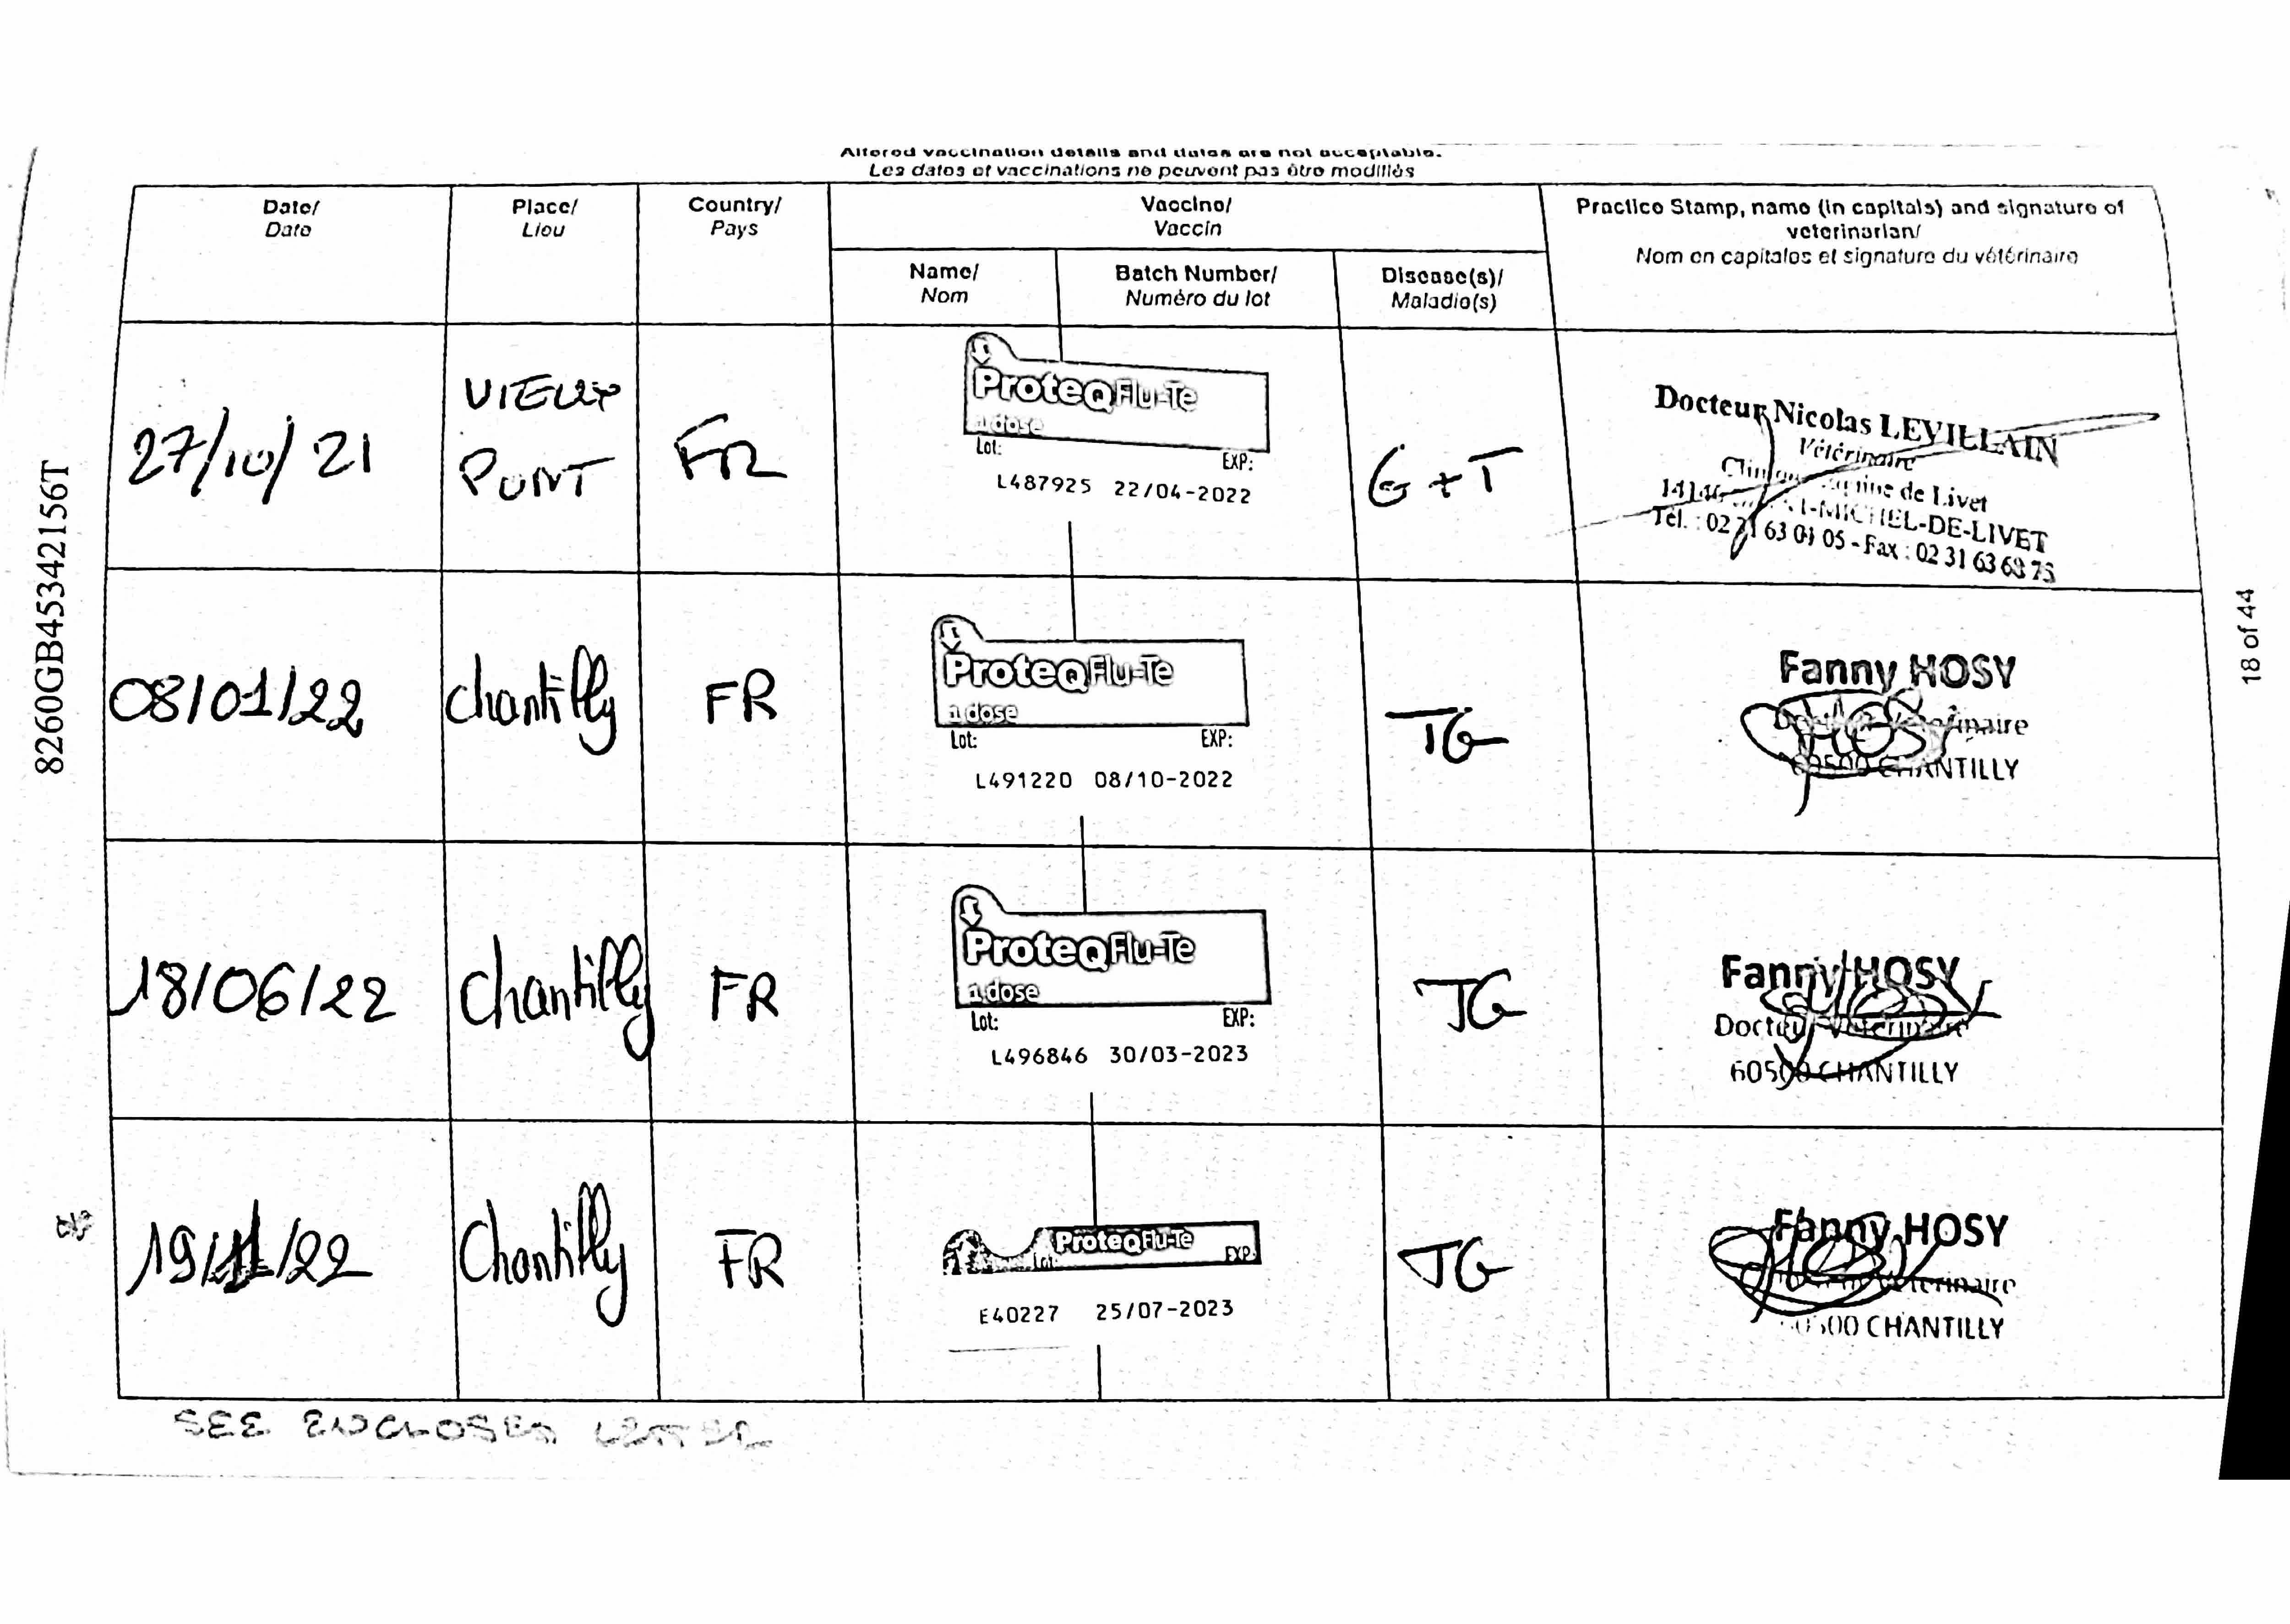 Altered vaccination details and dates are not acceptable.
Les dates et vaccinations ne peuvent pas être modifiés
Date/ Place/ Country/ Vaccine/ Practice Stamp, name (in capitals) and signature of
Date Lieu Pays Vaccin veterinarian/
Nom en capitales et signature du vétérinaire
Name/ Batch Number/ Disease(s)/
Nom Numéro du lot Maladie(s)
27/10/21
VIEUX
PONT
FR
ProteqFlu-Te
1 dose
Lot: EXP:
L487925 22/04-2022
G+T
Docteur Nicolas LEVILLAIN
Vétérinaire
Clinique de Livet
14140 -MICHEL-DE-LIVET
Tél. : 02 31 63 04 05 - Fax : 02 31 63 68 75
08/01/22
chantilly
FR
ProteqFlu-Te
1 dose
Lot: EXP:
L491220 08/10-2022
TG
Fanny HOSY
Docteur Vétérinaire
60500 CHANTILLY
18/06/22
Chantilly
FR
ProteqFlu-Te
1 dose
Lot: EXP:
L496846 30/03-2023
TG
Fanny HOSY
Docteur Vétérinaire
60500 CHANTILLY
19/11/22
Chantilly
FR
ProteqFlu-Te
Lot EXP:
E40227 25/07-2023
TG
Fanny HOSY
Docteur Vétérinaire
60500 CHANTILLY
SEE ENCLOSED LETTER
8260GB45342156T
18 of 44